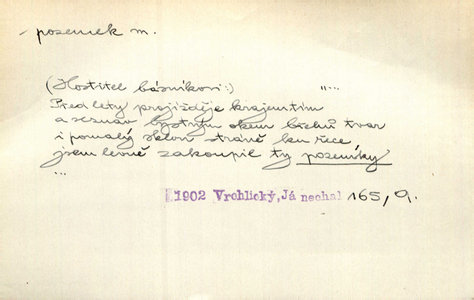 pozemek m.
(Hostitel básníkovi:) "...
Před lety projížděje krajem tím
a seznav bystrým okem břehů tvar
i pomalý sklon stráně ku řece,
jsem levně zakoupil ty pozemky
...
1902 Vrchlický, Já nechal 165, 9.